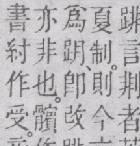 言荆者
夏制。則今
爲跀。即改
亦非也。髕
書紂作受。